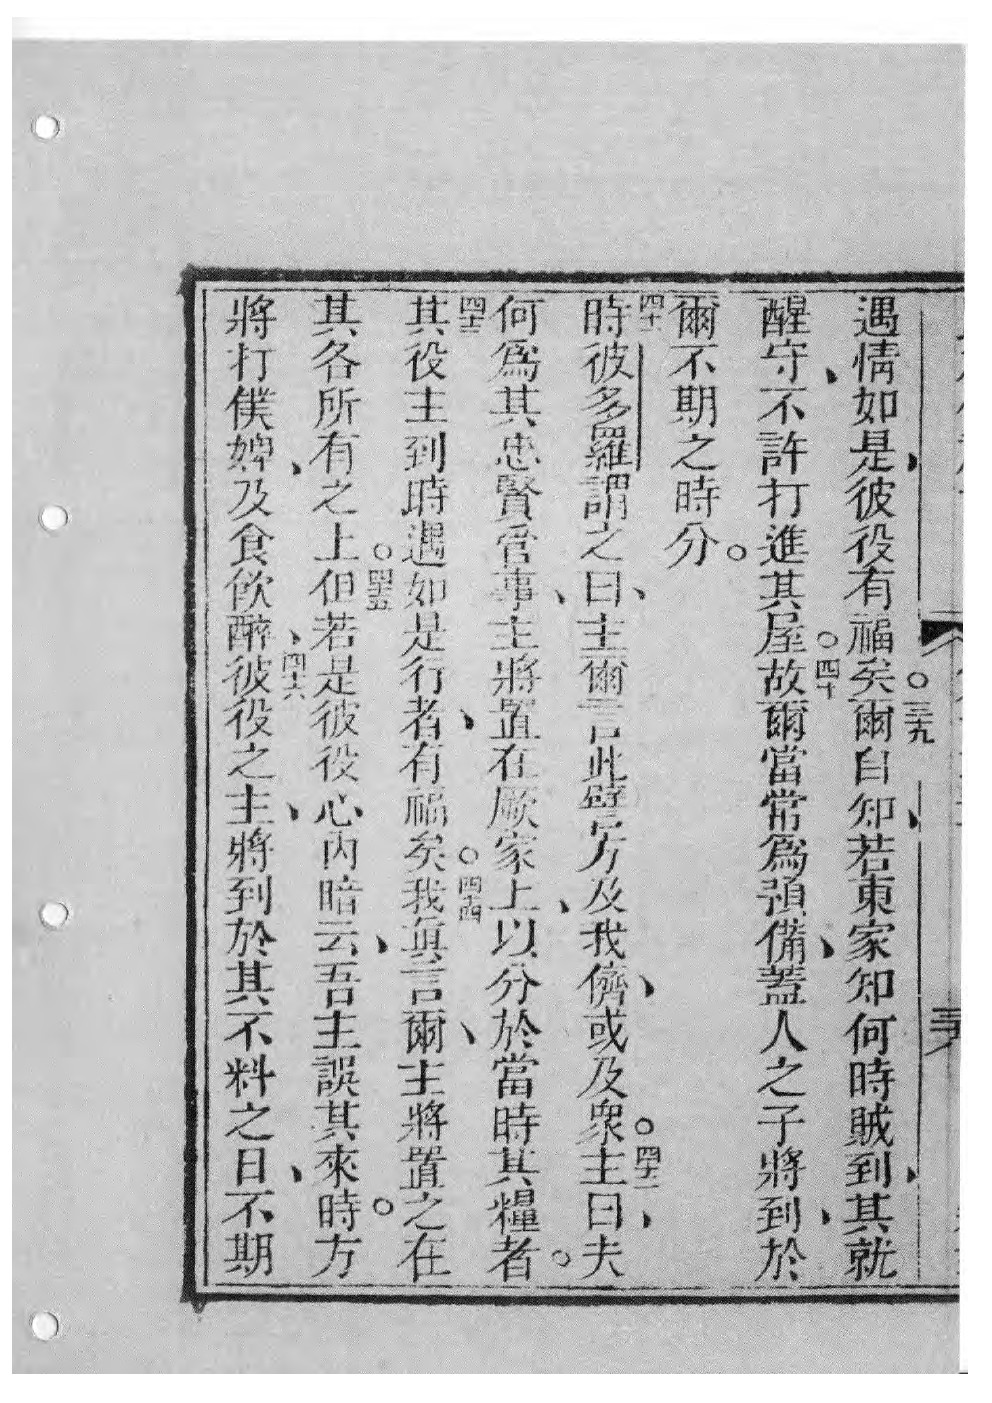 遇情如是、彼役有福矣。三十九爾自知、若東家知何時賊到、其就
醒守、不許打進其屋。四十故爾當常爲預備、蓋人之子將到、於
爾不期之時分。
四十一時彼多羅謂之曰、主爾言此譬方及我儕、或及衆。四十二主曰、夫
何爲其忠賢管事、主將置在厥家上、以分於當時其糧者。
四十三其役主到時遇如是行者、有福矣。四十四我眞言爾、主將置之在
其各所有之上。四十五但若是彼役心內暗云、吾主誤其來時。方
將打僕婢、及食飲醉、四十六彼役之主、將到於其不料之日、不期